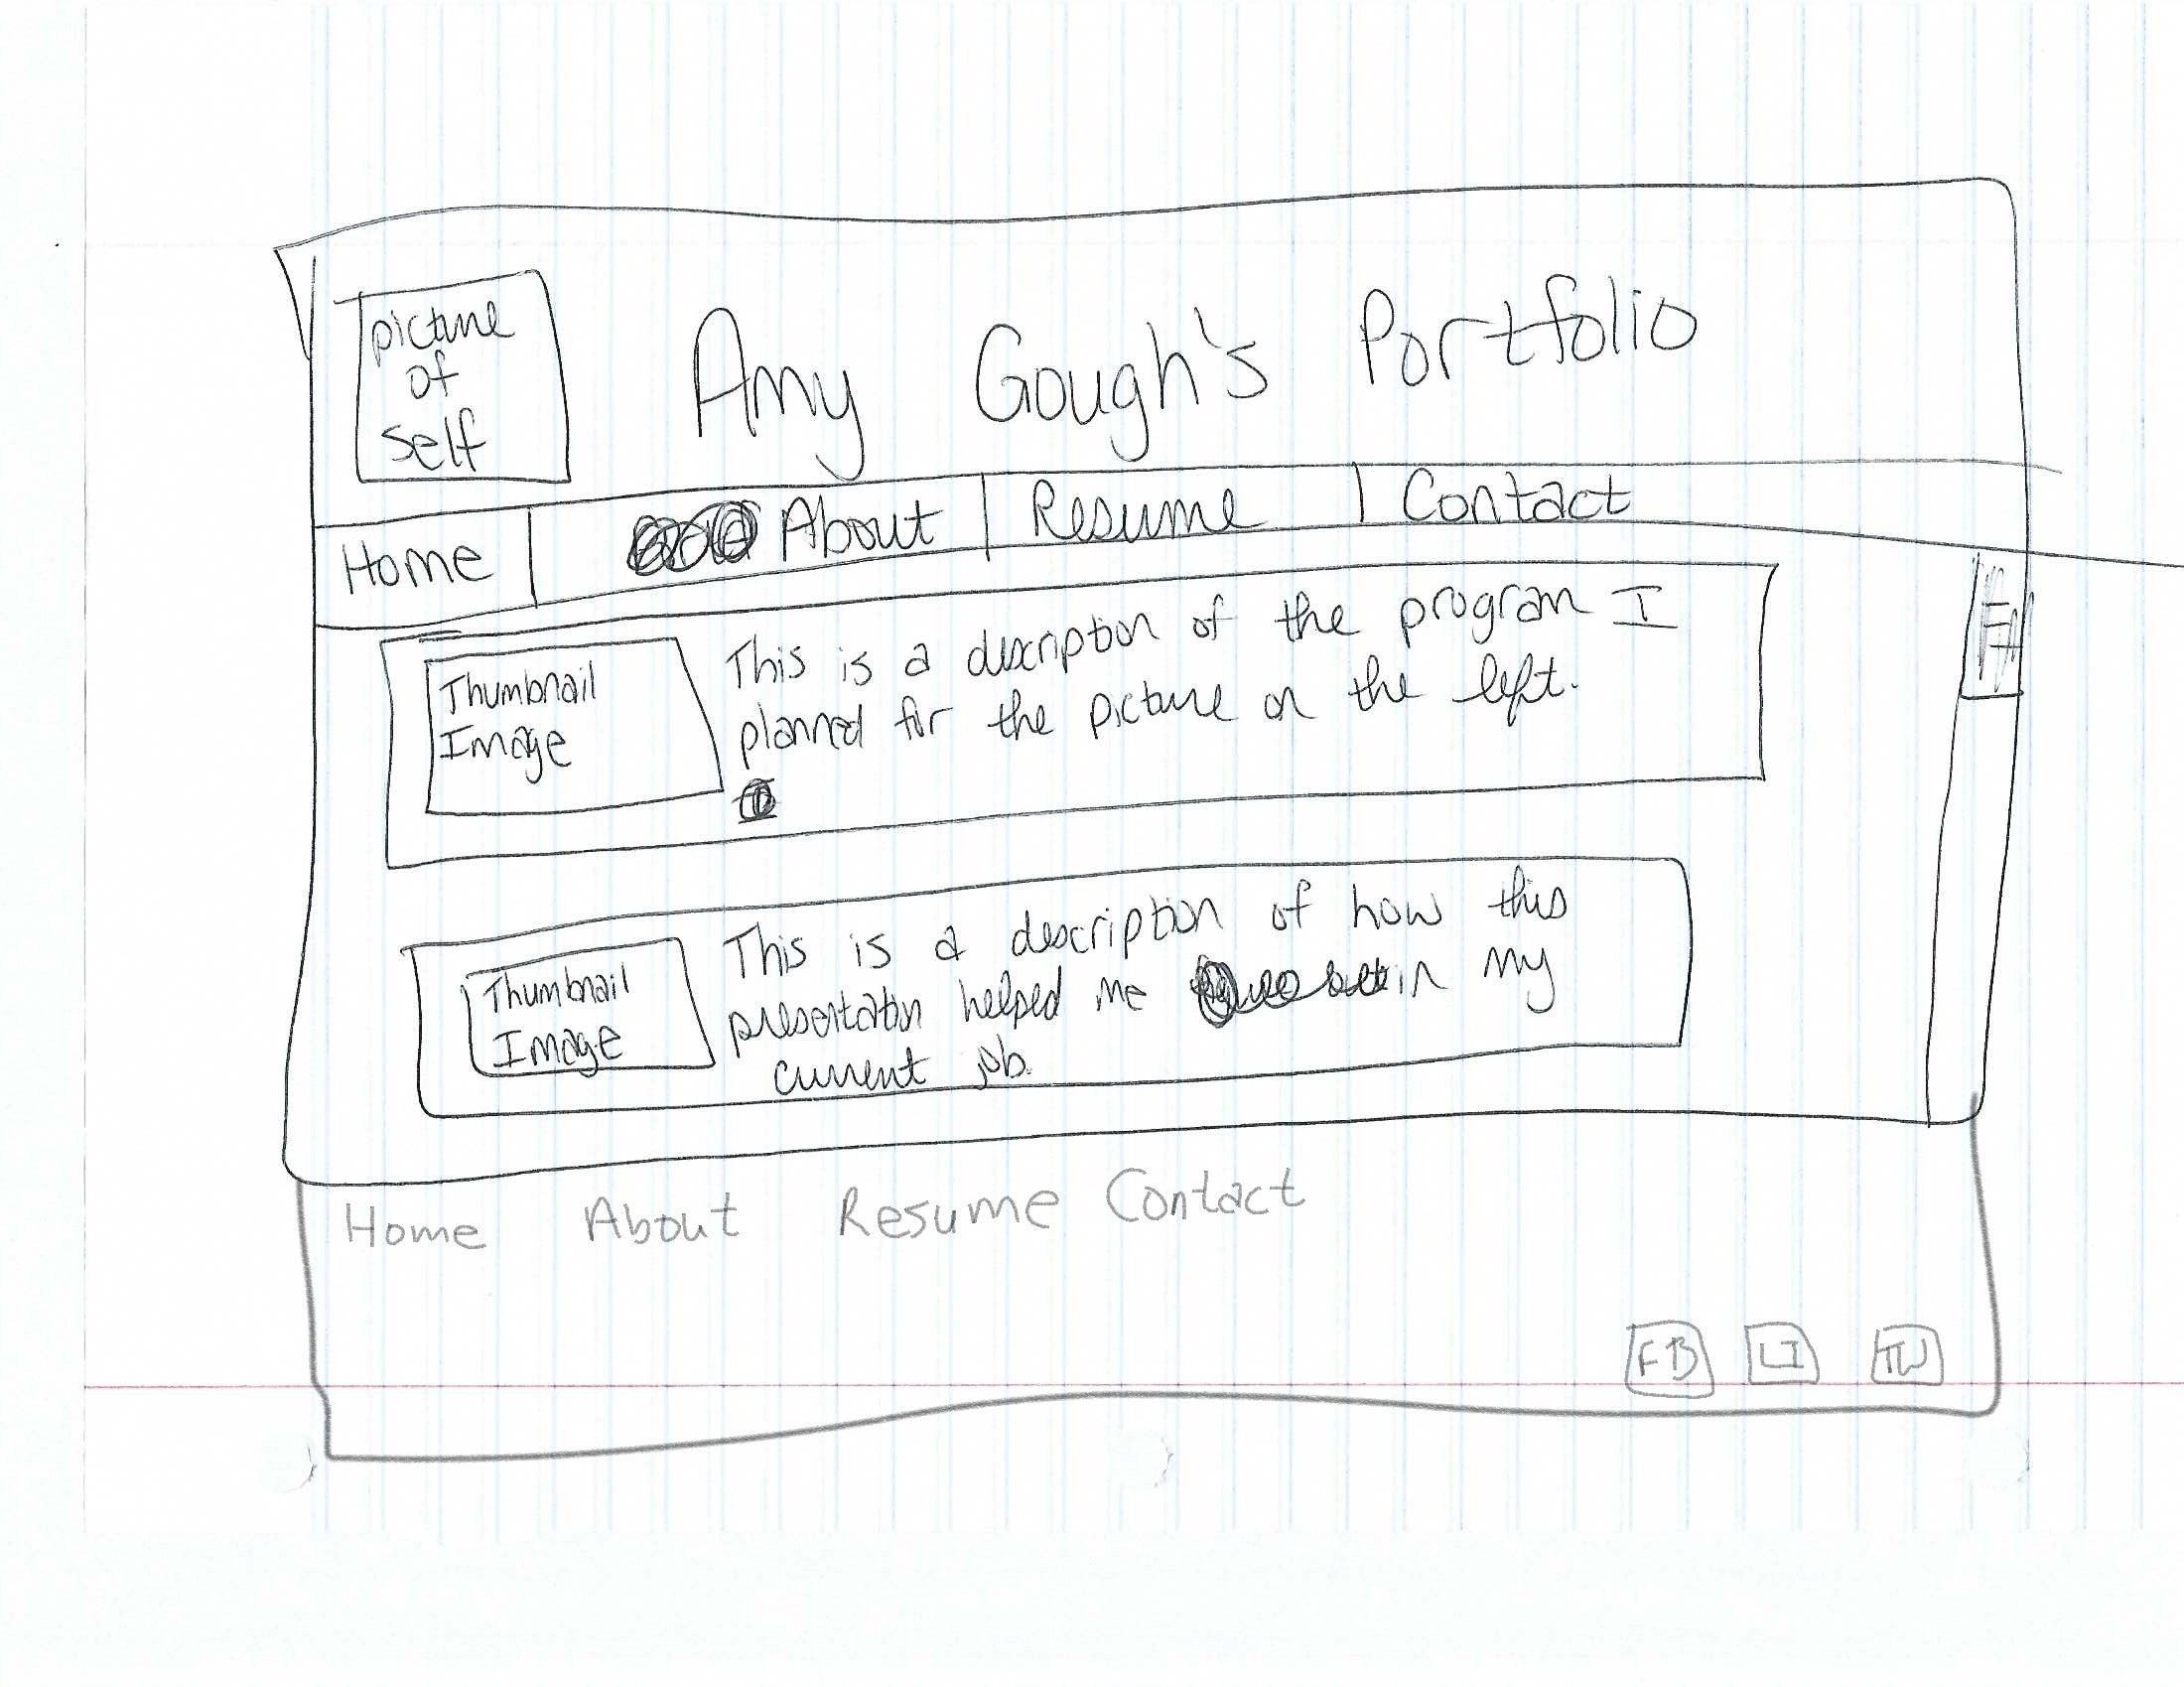 picture
of
self
Amy Gough's Portfolio
Home About Resume Contact
Thumbnail
Image
This is a description of the program I
planned for the picture on the left.
Thumbnail
Image
This is a description of how this
presentation helped me in my
current job.
Home About Resume Contact
FB LI TW